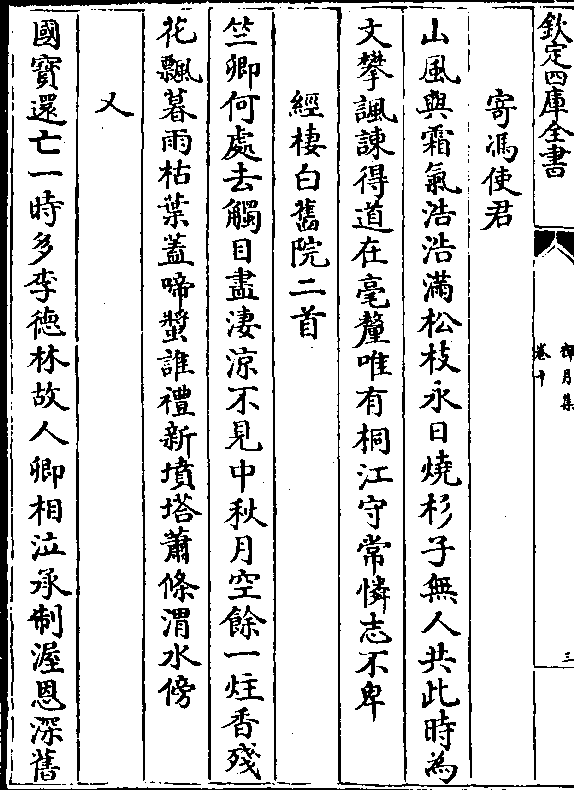 欽定四庫全書
禪月集
卷十
三
寄馮使君
山風與霜氣浩浩滿松枝永日燒杉子無人共此時為
文攀諷諫得道在毫釐唯有桐江守常憐志不卑
經棲白舊院二首
竺卿何處去觸目盡淒涼不見中秋月空餘一炷香殘
花飄暮雨枯葉蓋啼螿誰禮新墳塔蕭條渭水傍
又
國寳還亡一時多李德林故人卿相泣承制渥恩深舊